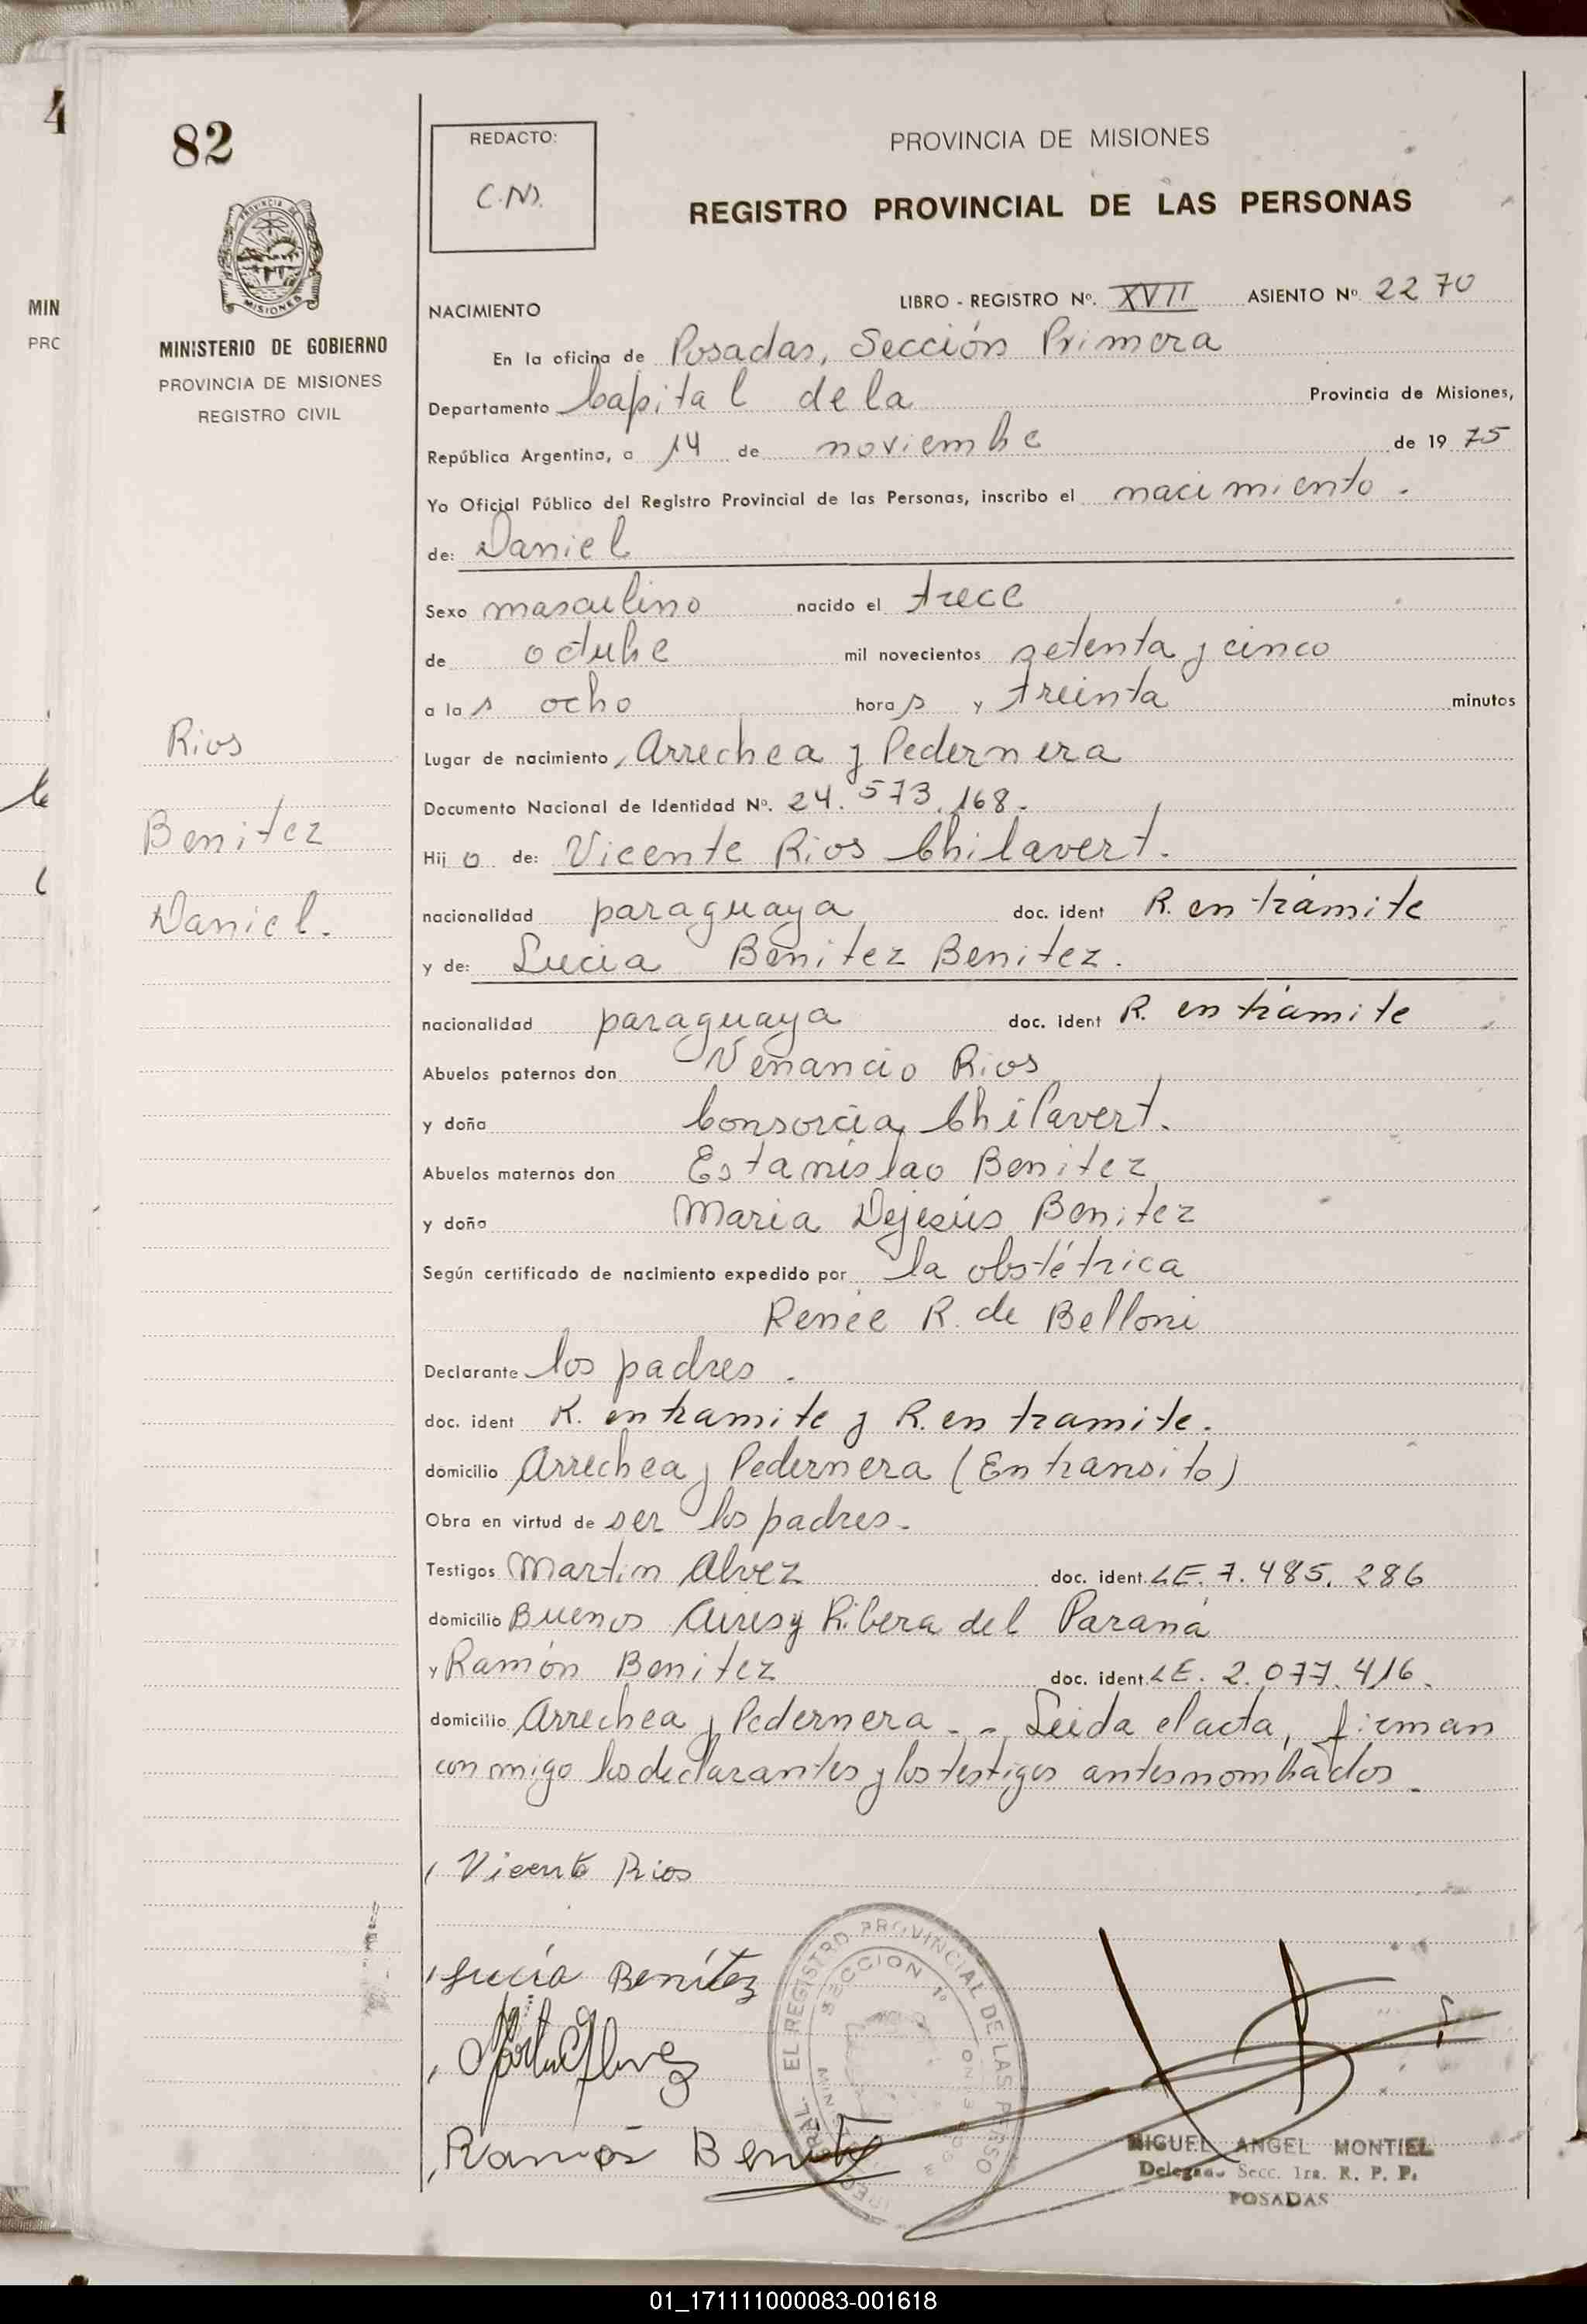 4
82
MIN
PRC
PROVINCIA DE
MISIONES
MINISTERIO DE GOBIERNO
PROVINCIA DE MISIONES
REGISTRO CIVIL
Rios
Benitez
Daniel.
REDACTO:
C.N.
PROVINCIA DE MISIONES
REGISTRO PROVINCIAL DE LAS PERSONAS
NACIMIENTO LIBRO - REGISTRO Nº. XVII ASIENTO Nº. 2270
En la oficina de Posadas, Sección Primera
Departamento Capital de la Provincia de Misiones,
República Argentina, a 14 de noviembre de 1975
Yo Oficial Público del Registro Provincial de las Personas, inscribo el nacimiento.
de: Daniel
Sexo masculino nacido el trece
de octubre mil novecientos setenta y cinco
a las ocho horas y treinta minutos
Lugar de nacimiento Arrechea y Pedernera
Documento Nacional de Identidad Nº. 24.573.168.
Hijo de: Vicente Rios Chilavert.
nacionalidad paraguaya doc. ident R. en trámite
y de: Lucia Benitez Benitez.
nacionalidad paraguaya doc. ident R. en trámite
Abuelos paternos don Venancio Rios
y doña Consorcia Chilavert.
Abuelos maternos don Estanislao Benitez
y doña Maria Dejesús Benitez
Según certificado de nacimiento expedido por la obstétrica
Renée R. de Belloni
Declarante los padres.
doc. ident R. en tramite y R. en tramite.
domicilio Arrechea y Pedernera (En transito)
Obra en virtud de ser los padres.
Testigos Martin Alvez doc. ident. LE. 7.485.286
domicilio Buenos Aires y Ribera del Paraná
y Ramón Benitez doc. ident. LE. 2.077.416.
domicilio Arrechea y Pedernera. - Leida el acta, firman
conmigo los declarantes y los testigos antes nombrados.
Vicente Rios
Lucía Benítez
Martin Alvez
Ramón Benitez
EL REGISTRO PROVINCIAL DE LAS PERSO
SECCION 1º
MIGUEL ANGEL MONTIEL
Delegado Secc. 1ra. R. P. P.
POSADAS
01_171111000083-001618